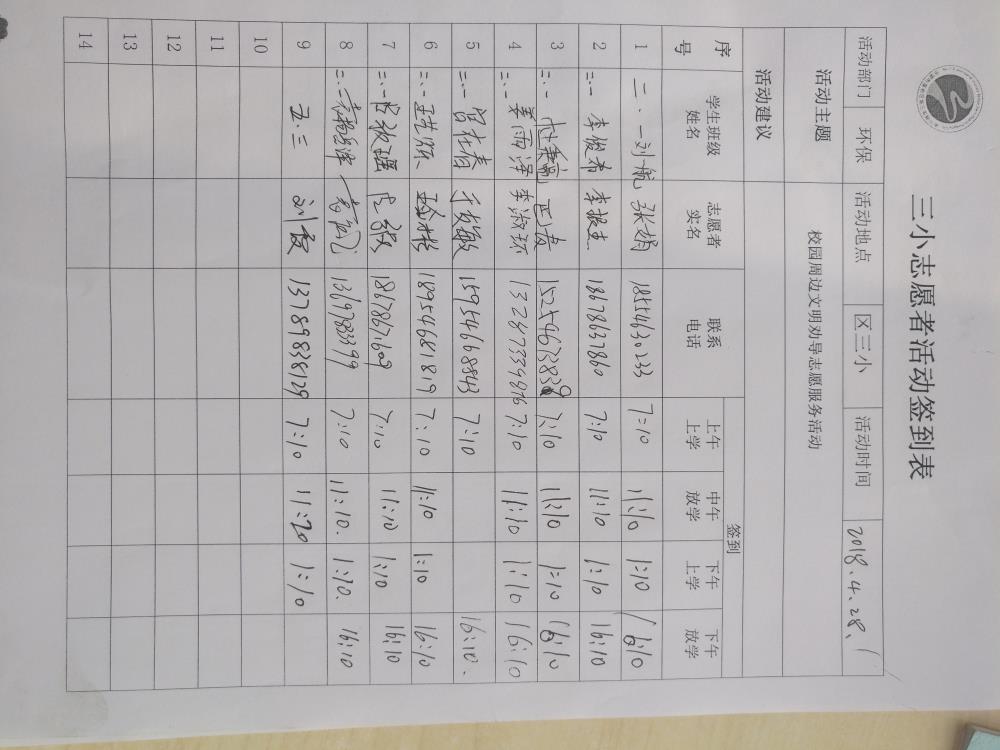 三小志愿者活动签到表
活动部门 环保 活动地点 区三小 活动时间 2018.4.28.
活动主题 校园周边文明劝导志愿服务活动
活动建议
序号 学生班级姓名 志愿者实名 联系电话 签到
上午上学 中午放学 下午上学 下午放学
1 二.一刘航 张娟 18554630233 7:10 11:10 1:10 16:10
2 二.一 李俊希 李振杰 18678657860 7:10 11:10 1:10 16:10
3 二.一 7:10 11:10 1:10 16:10
4 二.一 姜雨泽 李淑环 13287339816 7:10 11:10 1:10 16:10
5 二.一 15954668843 7:10 16:10.
6 二.一 18954681819 7:10 11:10 1:10 16:10
7 二.一 18678671609 7:10 11:10 1:10 16:10
8 二.一 13697883399 7:10 11:10. 1:10. 16:10
9 二.三 刘霞 13789838129 7:10 11:20 1:10
10
11
12
13
14